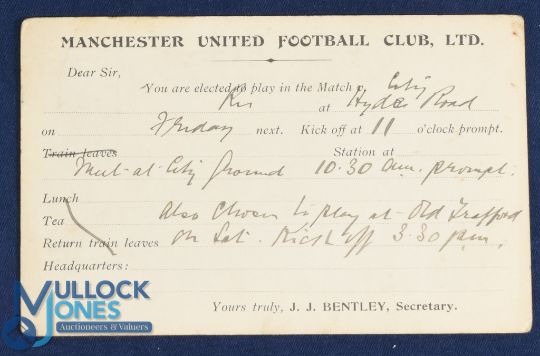 MANCHESTER UNITED FOOTBALL CLUB, LTD.
Dear Sir,
You are elected to play in the Match v City
Res at Hyde Road
on Friday next. Kick off at 11 o'clock prompt.
Train leaves Station at
Meet at City Ground 10.30 a.m. prompt.
Lunch
Tea also chosen to play at Old Trafford
Return train leaves on Sat. Kick off 3.30 p.m.
Headquarters:
Yours truly, J. J. BENTLEY, Secretary.
MULLOCK
JONES
Auctioneers & Valuers